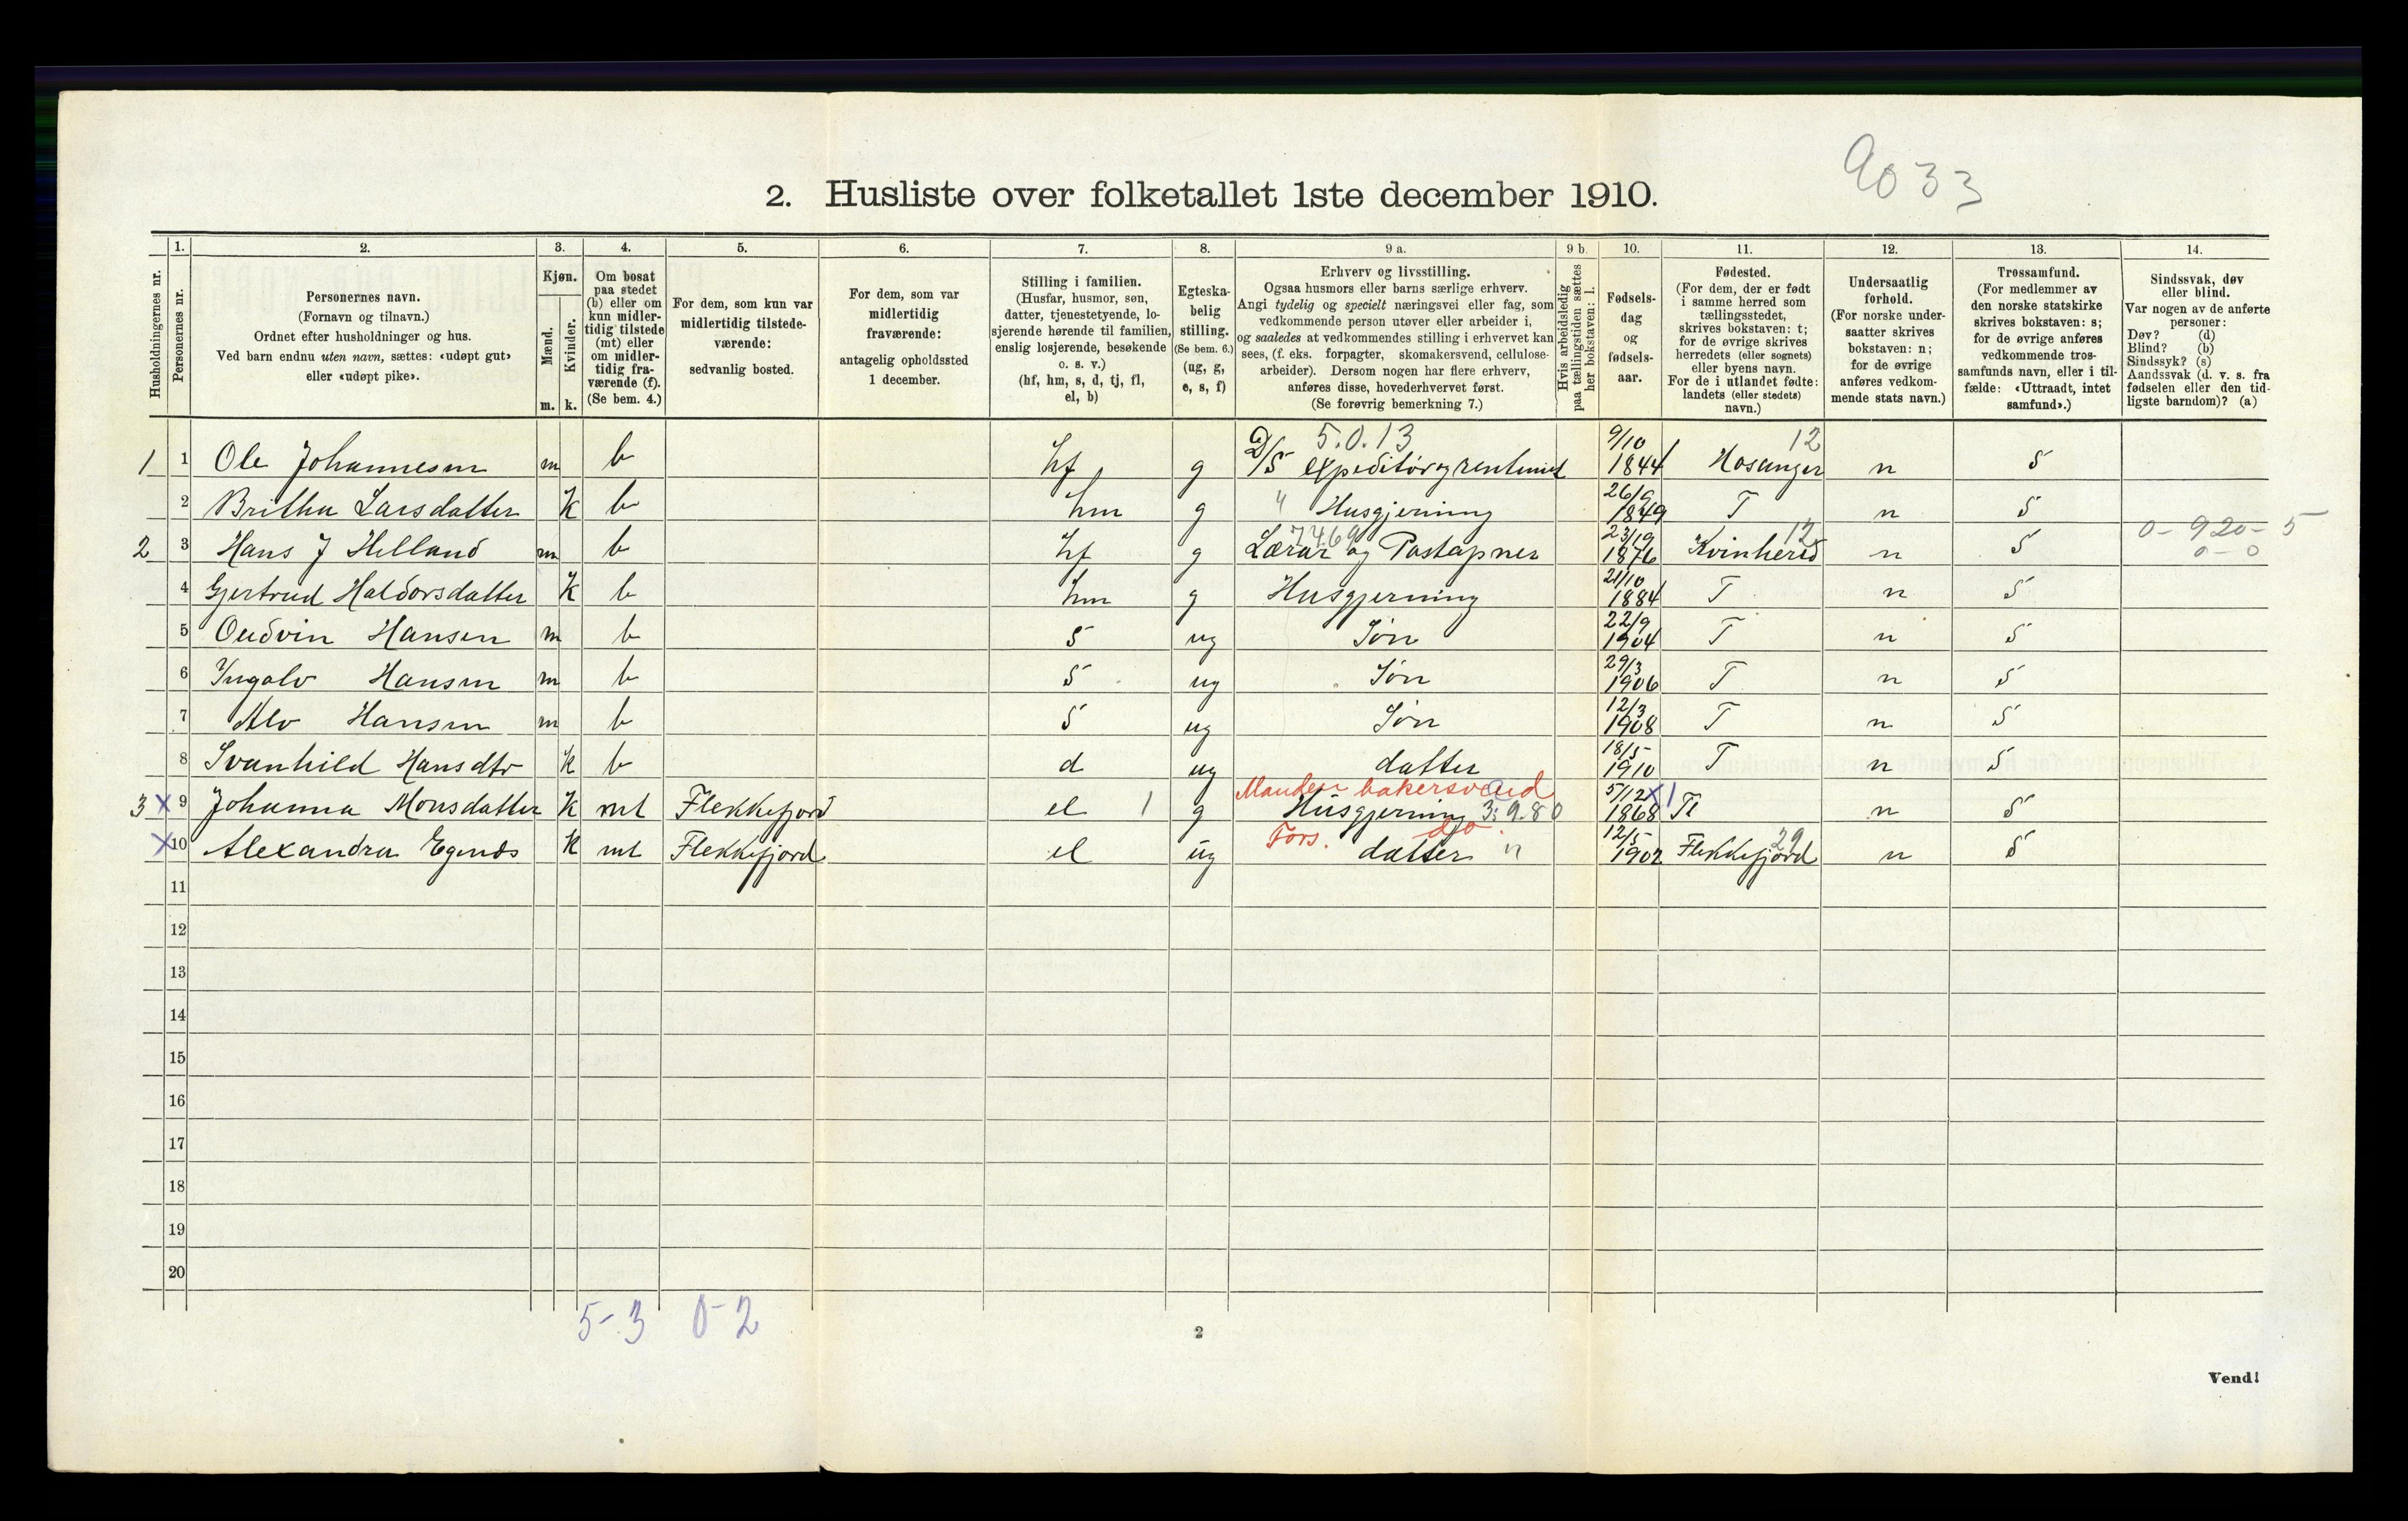 9033
2. Husliste over folketallet 1ste december 1910.
Husholdningernes nr.
1. Personernes nr.
2. Personernes navn.
(Fornavn og tilnavn.)
Ordnet efter husholdninger og hus.
Ved barn endnu uten navn, sættes: «udøpt gut»
eller «udøpt pike».
3. Kjøn.
Mænd. m.
Kvinder. k.
4. Om bosat
paa stedet
(b) eller om
kun midler-
tidig tilstede
(mt) eller
om midler-
tidig fra-
værende (f).
(Se bem. 4.)
5. For dem, som kun var
midlertidig tilstede-
værende:
sedvanlig bosted.
6. For dem, som var
midlertidig
fraværende:
antagelig opholdssted
1 december.
7. Stilling i familien.
(Husfar, husmor, søn,
datter, tjenestetyende, lo-
sjerende hørende til familien,
enslig losjerende, besøkende
o. s. v.)
(hf, hm, s, d, tj, fl,
el, b)
8. Egteska-
belig
stilling.
(Se bem. 6.)
(ug, g,
e, s, f)
9 a. Erhverv og livsstilling.
Ogsaa husmors eller barns særlige erhverv.
Angi tydelig og specielt næringsvei eller fag, som
vedkommende person utøver eller arbeider i,
og saaledes at vedkommendes stilling i erhvervet kan
sees, (f. eks. forpagter, skomakersvend, cellulose-
arbeider). Dersom nogen har flere erhverv,
anføres disse, hovederhvervet først.
(Se forøvrig bemerkning 7.)
9 b. Hvis arbeidsledig
paa tællingstiden sættes
her bokstaven: l.
10. Fødsels-
dag
og
fødsels-
aar.
11. Fødested.
(For dem, der er født
i samme herred som
tællingsstedet,
skrives bokstaven: t;
for de øvrige skrives
herredets (eller sognets)
eller byens navn.
For de i utlandet fødte:
landets (eller stedets)
navn.)
12. Undersaatlig
forhold.
(For norske under-
saatter skrives
bokstaven: n;
for de øvrige
anføres vedkom-
mende stats navn.)
13. Trossamfund.
(For medlemmer av
den norske statskirke
skrives bokstaven: s;
for de øvrige anføres
vedkommende tros-
samfunds navn, eller i til-
fælde: «Uttraadt, intet
samfund».)
14. Sindssvak, døv
eller blind.
Var nogen av de anførte
personer:
Døv? (d)
Blind? (b)
Sindssyk? (s)
Aandssvak (d. v. s. fra
fødselen eller den tid-
ligste barndom)? (a)
5.0.13 9/10 12
1 1 Ole Johannesen m b hf g D/S expeditör og rentenist 1844 Hosanger n S
26/9
2 Britha Larsdatter k b hm g " Husgjerning 1849 T n S
7469 23/19 12 0-920-5
2 3 Hans J Helland m b hf g Lærar og Postapner 1876 Kvinherid n S 0-0
21/10
4 Gjertrud Haldorsdatter k b hm g Husgjerning 1884 T n S
22/9
5 Oudvin Hansen m b S ug Søn 1904 T n S
29/3
6 Yngalv Hansen m b S ug Søn 1906 T n S
12/3
7 Alv Hansen m b S ug Søn 1908 T n S
18/5
8 Svanhild Hansdtr k b d ug datter 1910 T n S
Manden bakersvend 5/12 X1
3 X 9 Johanna Monsdatter k mt Flekkefjord el 1 g Husgjerning 3:9.80 1868 T n S
Fors. do. 12/5 29
X 10 Alexandra Egends k mt Flekkefjord el ug datter n 1902 Flekkefjord n S
11
12
13
14
15
16
17
18
19
20
5-3 0-2
2
Vend!